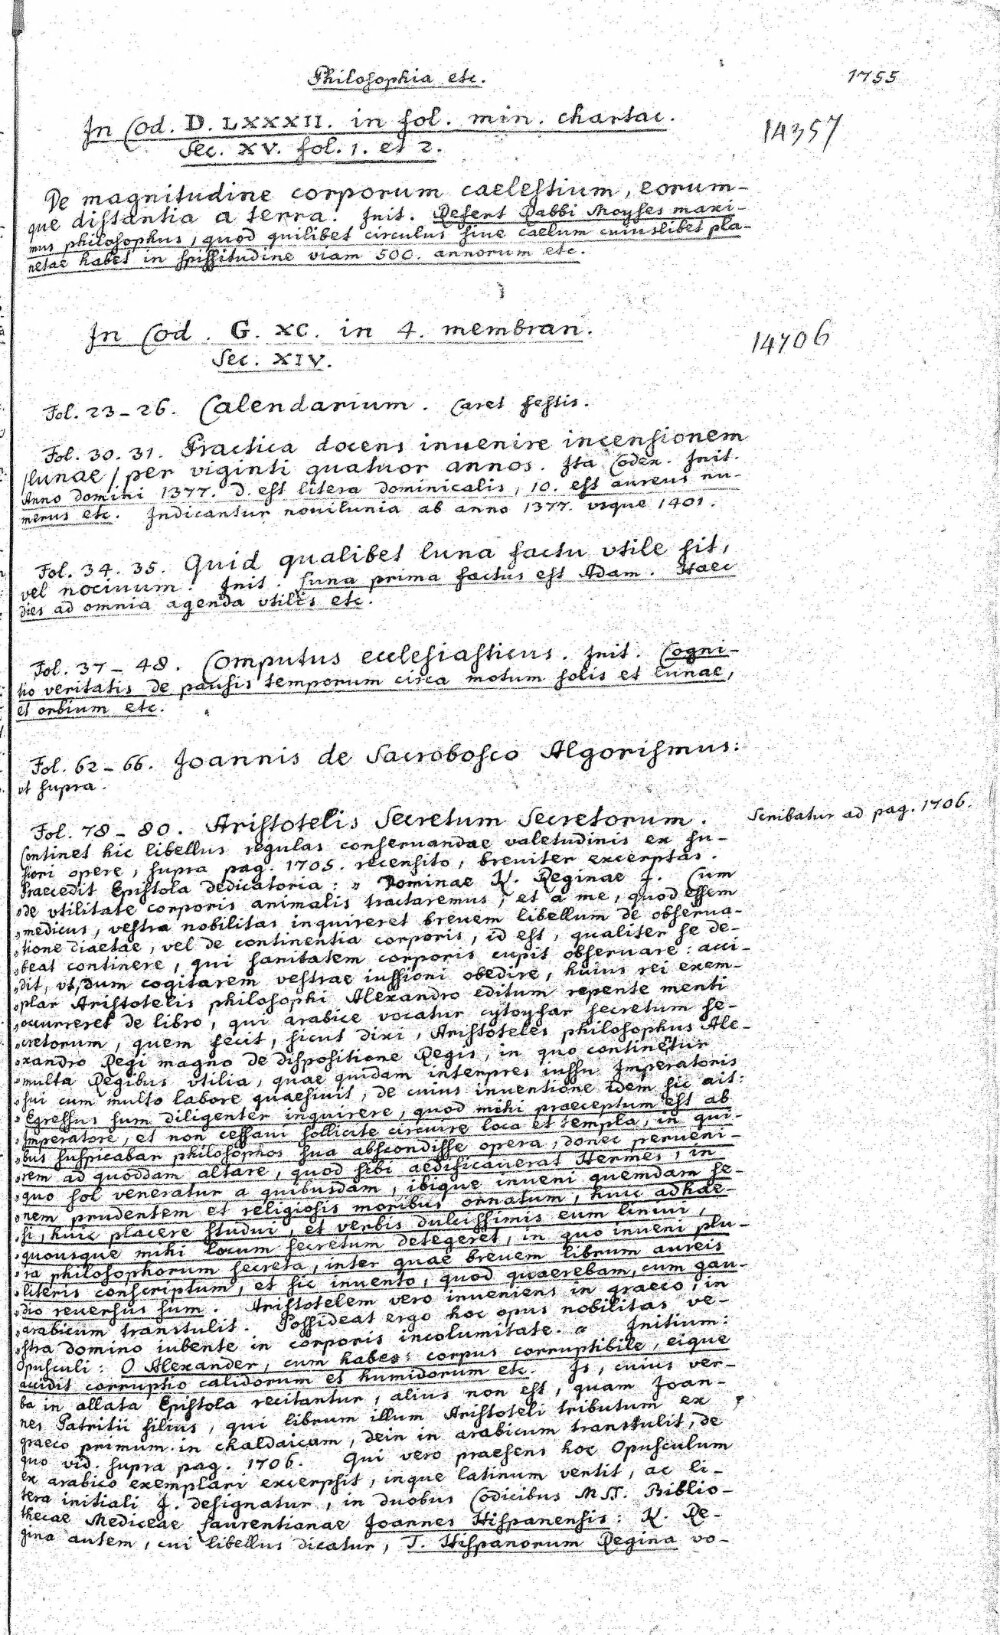 Philosophia etc.
1755
In Cod. D. LXXXII. in fol. min. chartac.
14357
Sec. XV. fol. 1. et 2.
De magnitudine corporum caelestium, eorum-
que distantia a terra. Init. Refert Rabbi Moyses maxi-
mus philosophus, quod quilibet circulus siue caelum cuiuslibet pla-
netae habet in spissitudine viam 500. annorum etc.
In Cod. G. XC. in 4. membran.
14706
Sec. XIV.
Fol. 23-26. Calendarium. Caret festis.
Fol. 30. 31. Practica docens inuenire incensionem
/lunae/ per viginti quatuor annos. Ita Codex. Init.
Anno domini 1377. D. est litera dominicalis, 10. est aureus nu-
merus etc. Indicantur nouilunia ab anno 1377. vsque 1401.
Fol. 34. 35. Quid qualibet luna factu vtile sit,
vel nociuum. Init. Luna prima factus est Adam. Haec
dies ad omnia agenda vtilis etc.
Fol. 37-48. Computus ecclesiasticus. Init. Cogni-
tio veritatis de pausis temporum circa motum solis et lunae,
et orbium etc.
Fol. 62-66. Joannis de Sacrobosco Algorismus:
vt supra.
Fol. 78-80. Aristotelis Secretum Secretorum.
Scribatur ad pag. 1706.
Continet hic libellus regulas conseruandae valetudinis ex su-
siori opere, supra pag. 1705. recensito, breuiter excerptas.
Praecedit Epistola dedicatoria: „ Dominae K. Reginae J. Cum
„de vtilitate corporis animalis tractaremus, et a me, quod essem
„medicus, vestra nobilitas inquireret breuem libellum de obserua-
„tione diaetae, vel de continentia corporis, id est, qualiter se de-
„beat continere, qui sanitatem corporis cupit obseruare: acci-
„dit, vt, dum cogitarem vestrae iussioni obedire, huius rei exem-
„plar Aristotelis philosophi Alexandro editum repente menti
„occurreret de libro, qui arabice vocatur cytoysar secretum se-
„cretorum, quem fecit, sicut dixi, Aristoteles philosophus Ale-
„xandro Regi magno de dispositione Regis, in quo continetur
„multa Regibus vtilia, quae quidam interpres iussu Imperatoris
„sui cum multo labore quaesiuit, de cuius inuentione idem sic ait:
„Egressus sum diligenter inquirere, quod mihi praeceptum est ab
„Imperatore, et non cessaui sollicite circuire loca et templa, in qui-
„bus suspicabar philosophos sua abscondisse opera, donec perueni-
„rem ad quoddam altare, quod sibi aedificauerat Hermes, in
„quo sol veneratur a quibusdam, ibique inueni quemdam se-
„nem prudentem et religiosis moribus ornatum, huic adhae-
„si, huic placere studui, et verbis dulcissimis eum liniui,
„quousque mihi locum secretum detegeret, in quo inueni plu-
„ra philosophorum secreta, inter quae breuem librum aureis
„literis conscriptum, et sic inuento, quod quaerebam, cum gau-
„dio reuersus sum. Aristotelem vero inueniens in graeco, in
„arabicum transtulit. Possideat ergo hoc opus nobilitas ve-
„stra domino iubente in corporis incolumitate. „ Initium:
Opusculi: O Alexander, cum habes corpus corruptibile, eique
accidit corruptio calidorum et humidorum etc. Is, cuius ver-
ba in allata Epistola recitantur, alius non est, quam Joan-
nes Patritii filius, qui librum illum Aristoteli tributum ex
graeco primum in chaldaicam, dein in arabicum transtulit, de
quo vid. supra pag. 1706. Qui vero praesens hoc Opusculum
ex arabico exemplari excerpsit, inque latinum vertit, ac li-
tera initiali J. designatur, in duobus Codicibus MSS. Biblio-
thecae Mediceae Laurentianae Joannes Hispanensis: K. Re-
gina autem, cui libellus dicatur, T. Hispanorum Regina vo-